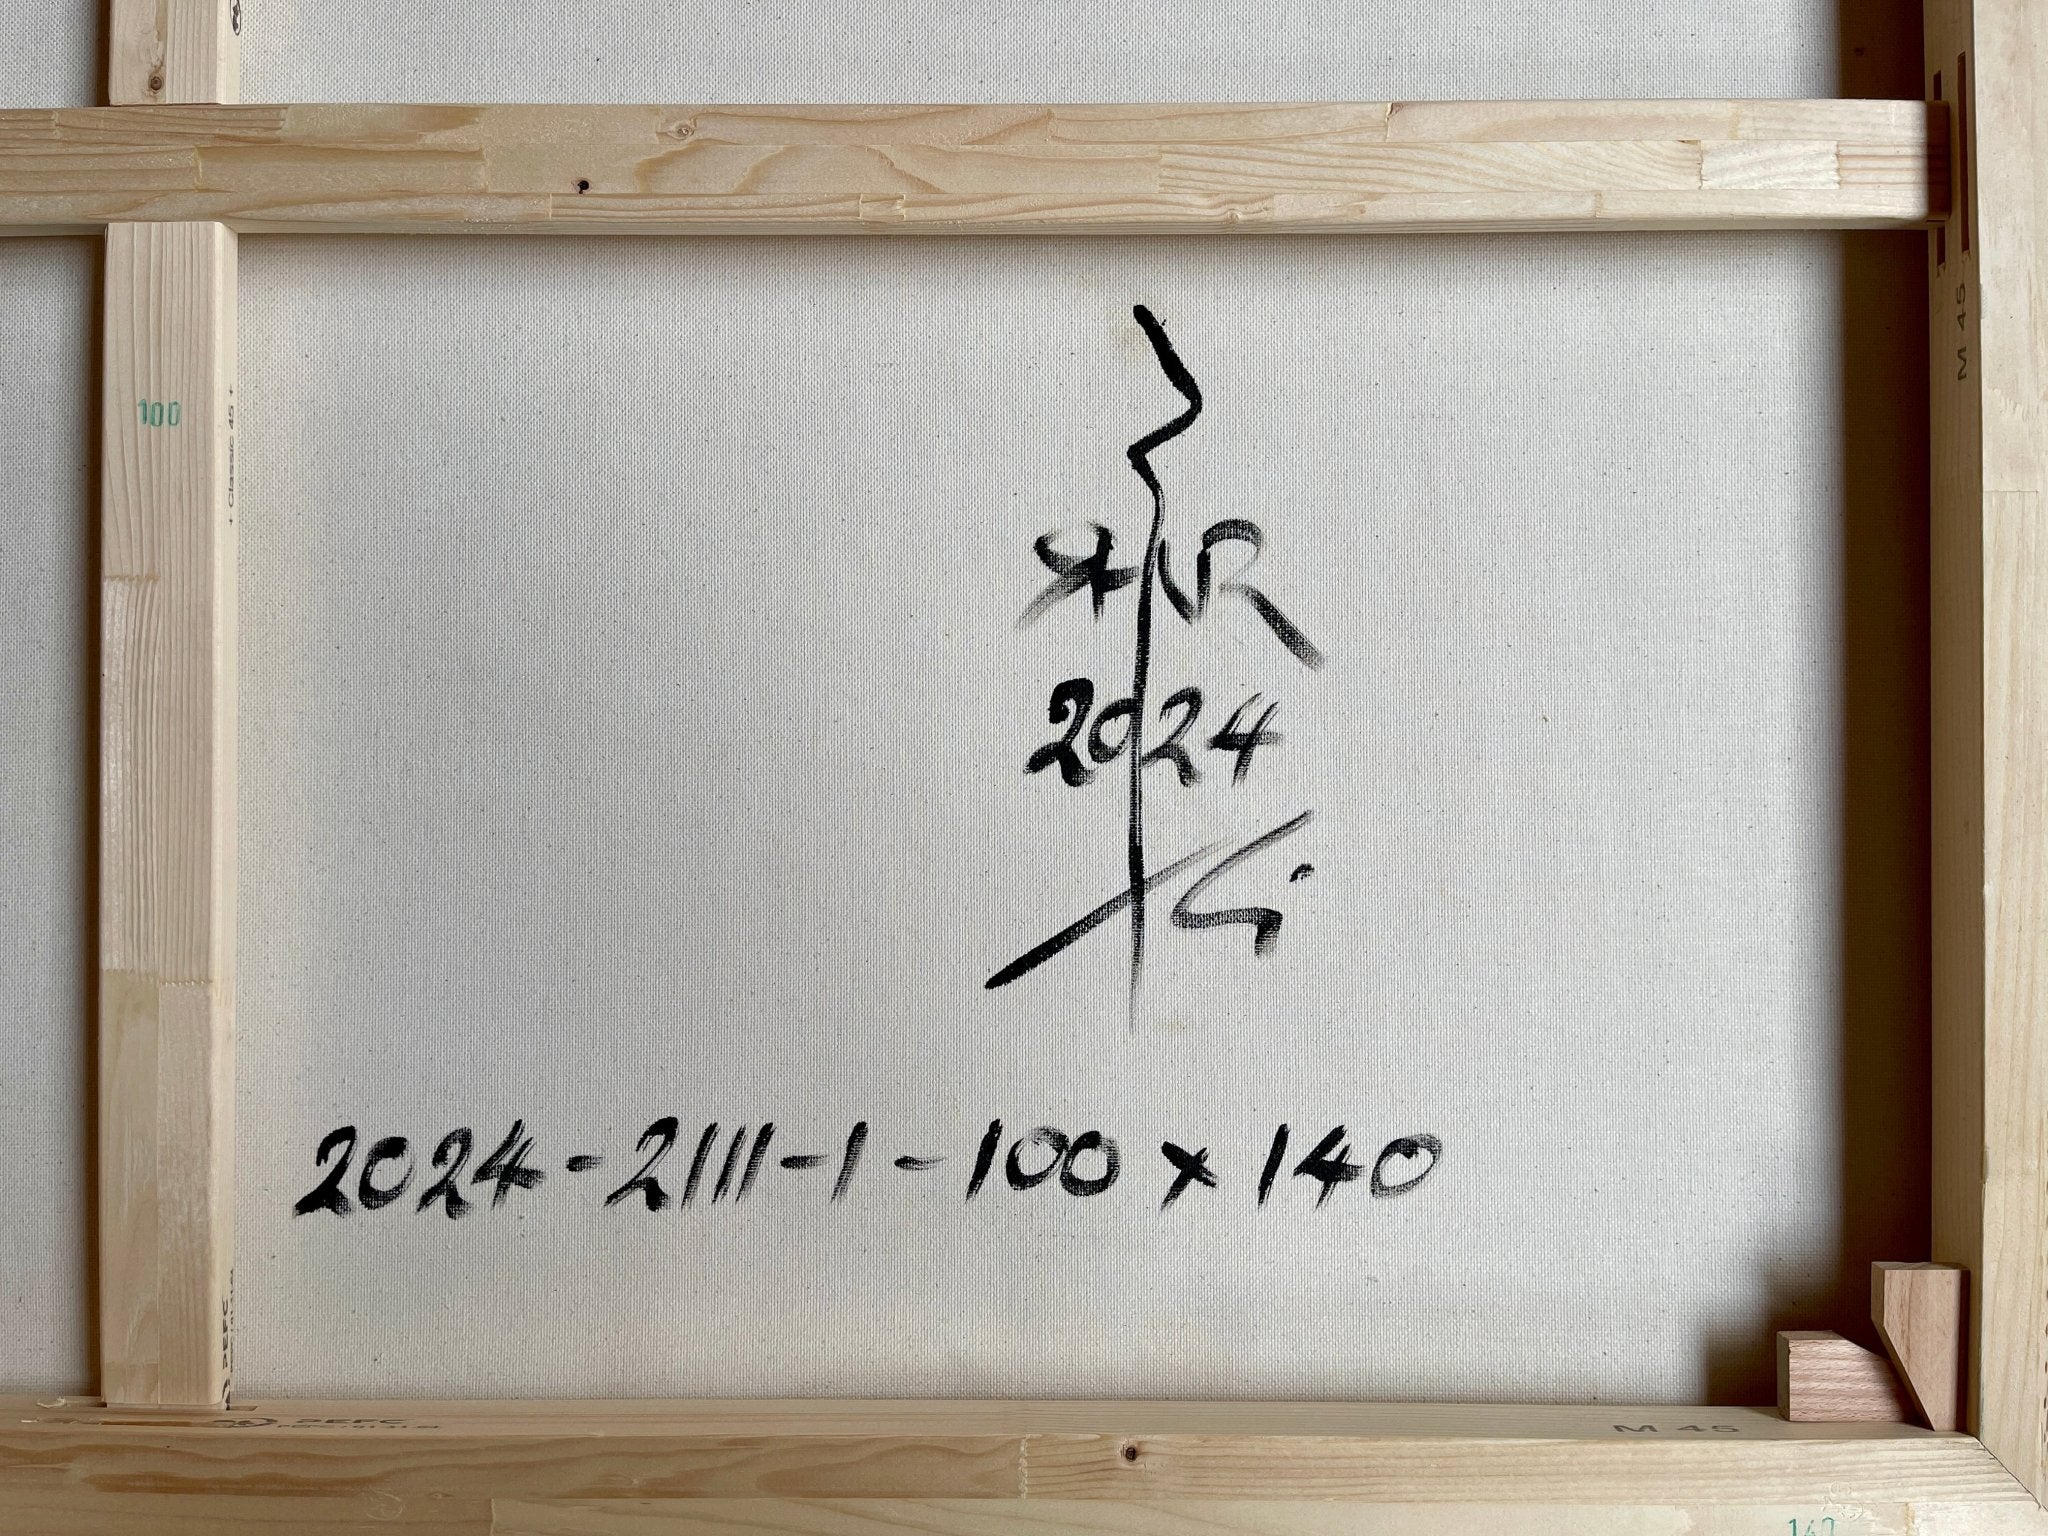 M 45
100
+ Classic 45 +
2024
2024-2111-1-100 x 140
PEFC
PEFC
M 45
140